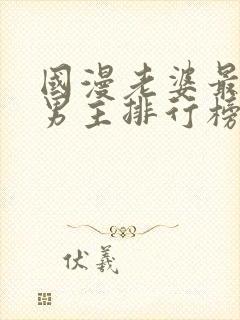 國漫老婆最
男主排行榜
伏羲